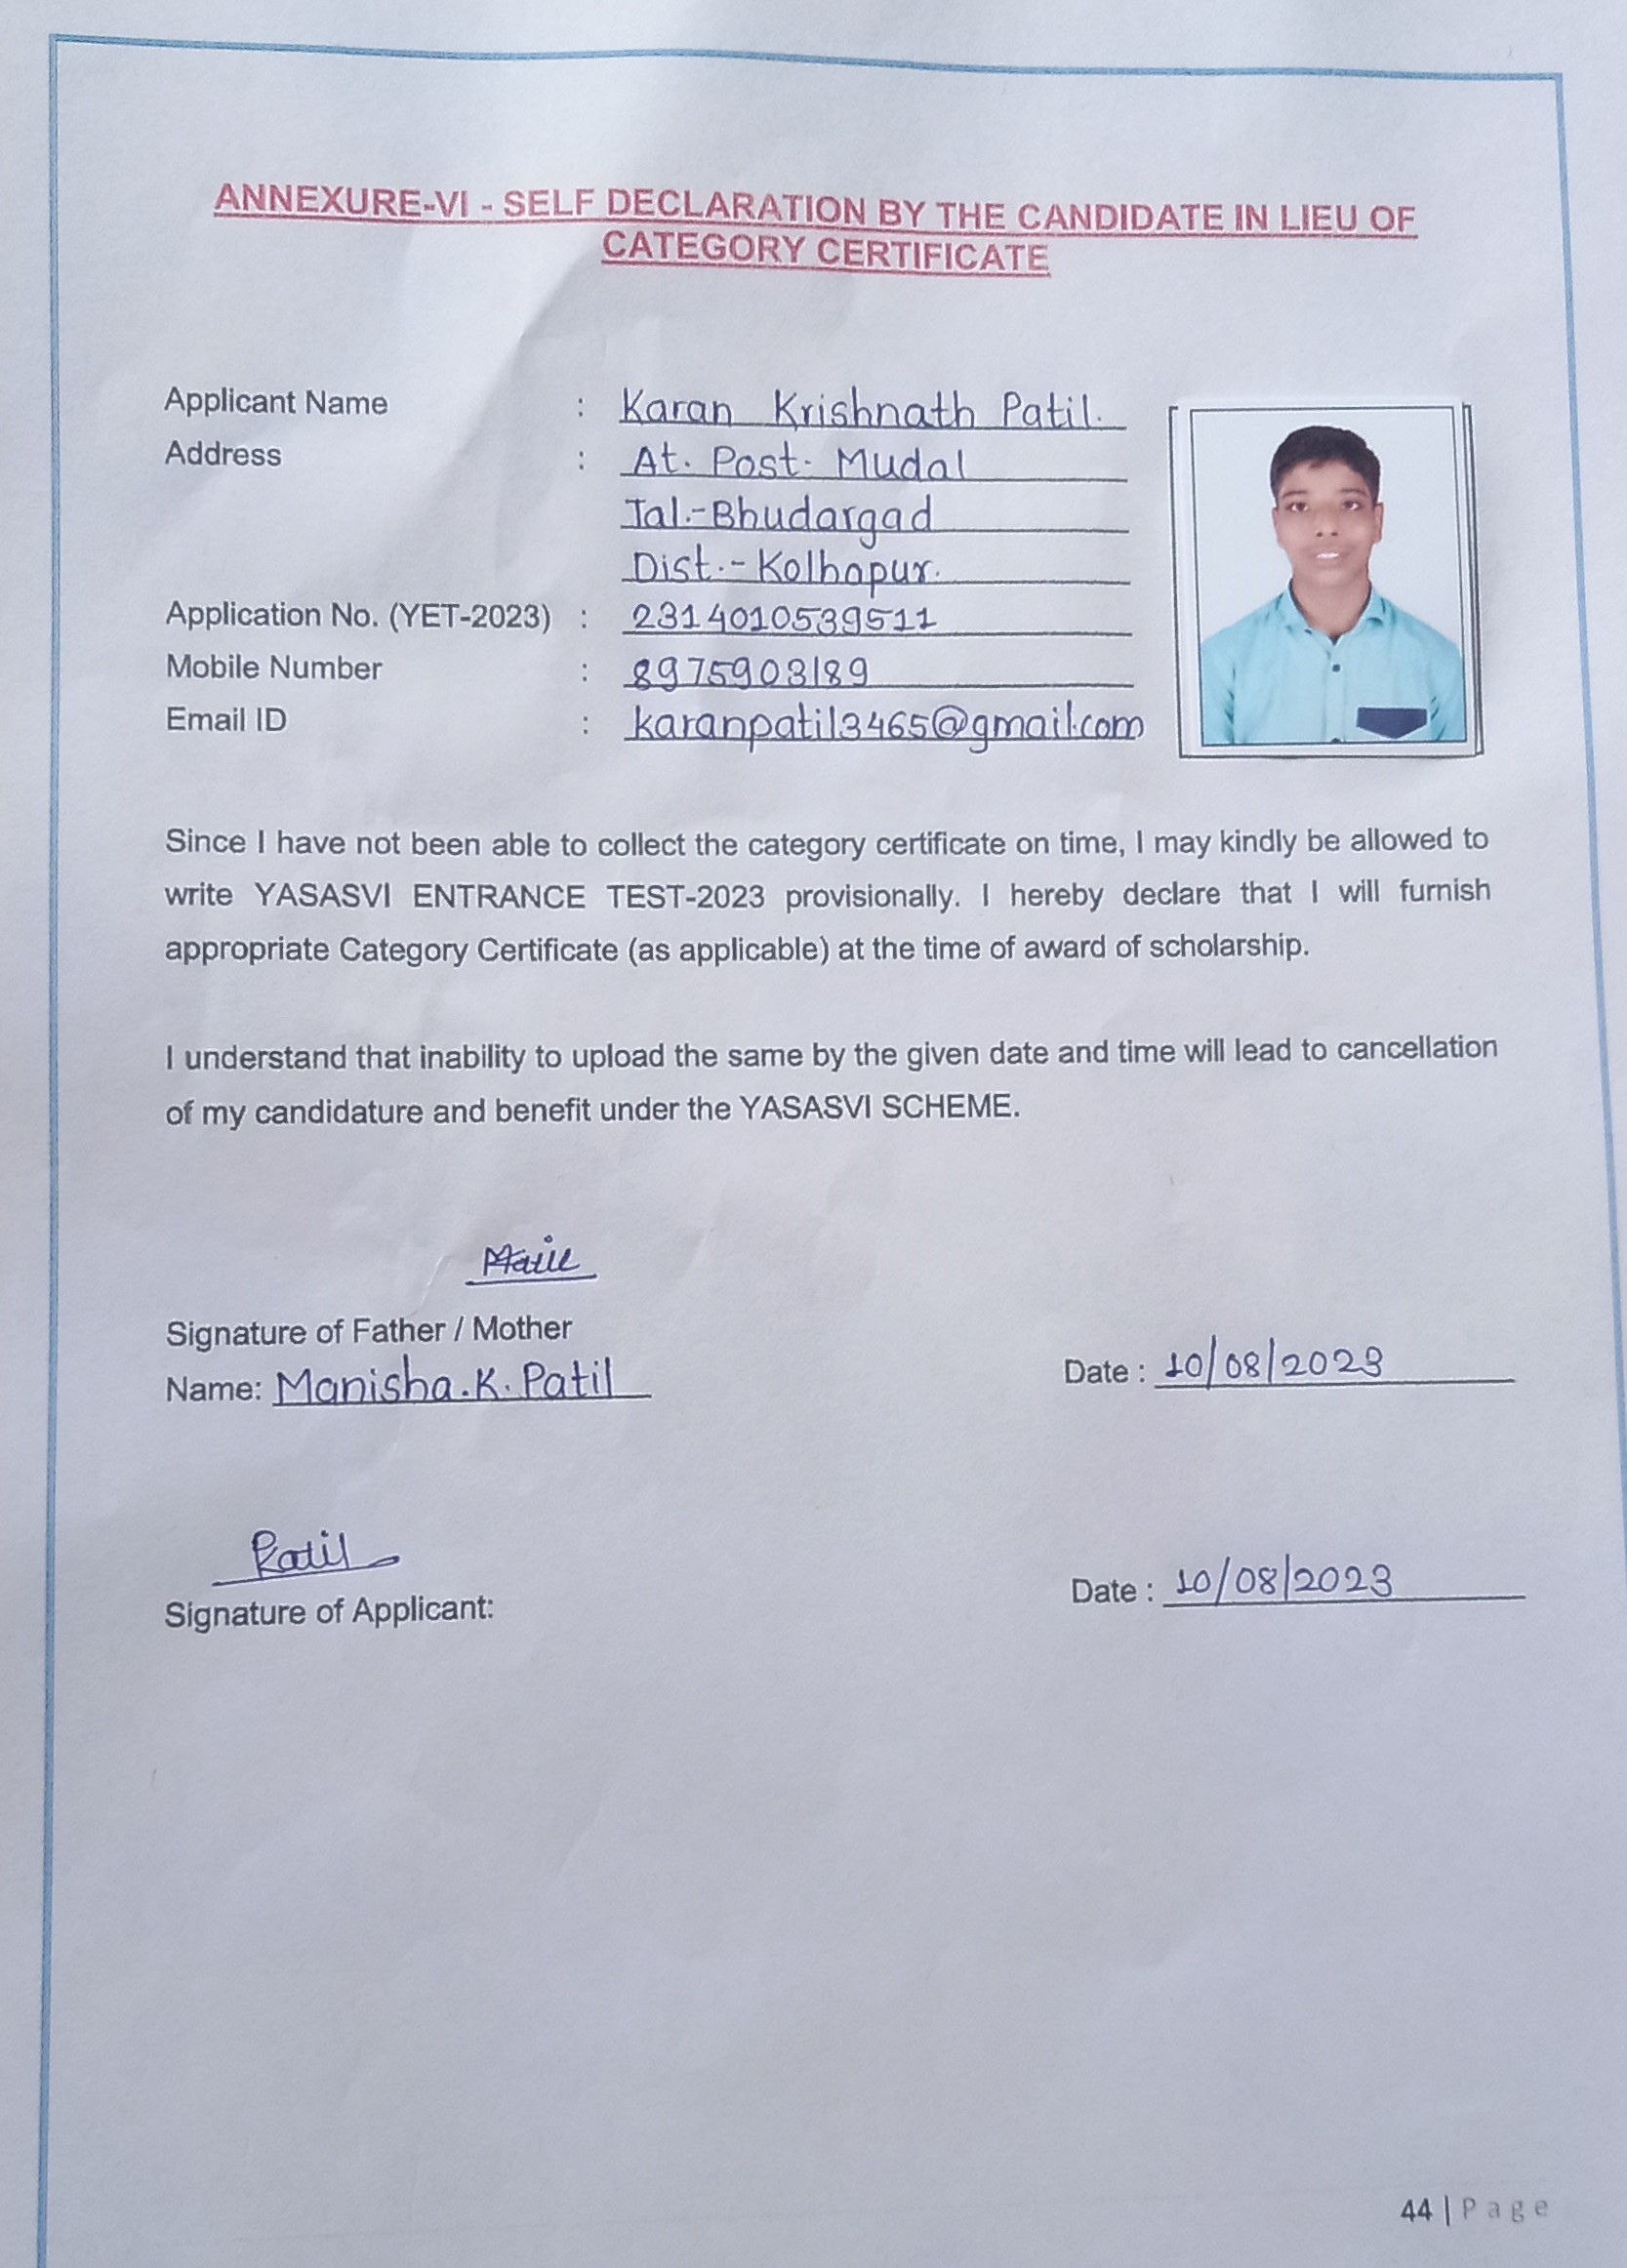 ANNEXURE-VI - SELF DECLARATION BY THE CANDIDATE IN LIEU OF
CATEGORY CERTIFICATE
Applicant Name : Karan Krishnath Patil.
Address : At. Post. Mudal
Tal.-Bhudargad
Dist.-Kolhapur.
Application No. (YET-2023) : 2314010539511
Mobile Number : 8975903189
Email ID : karanpatil3465@gmail.com
Since I have not been able to collect the category certificate on time, I may kindly be allowed to
write YASASVI ENTRANCE TEST-2023 provisionally. I hereby declare that I will furnish
appropriate Category Certificate (as applicable) at the time of award of scholarship.
I understand that inability to upload the same by the given date and time will lead to cancellation
of my candidature and benefit under the YASASVI SCHEME.
Signature of Father / Mother
Name: Manisha.K. Patil
Date : 10/08/2023
Patil
Signature of Applicant:
Date : 10/08/2023
44 | Page